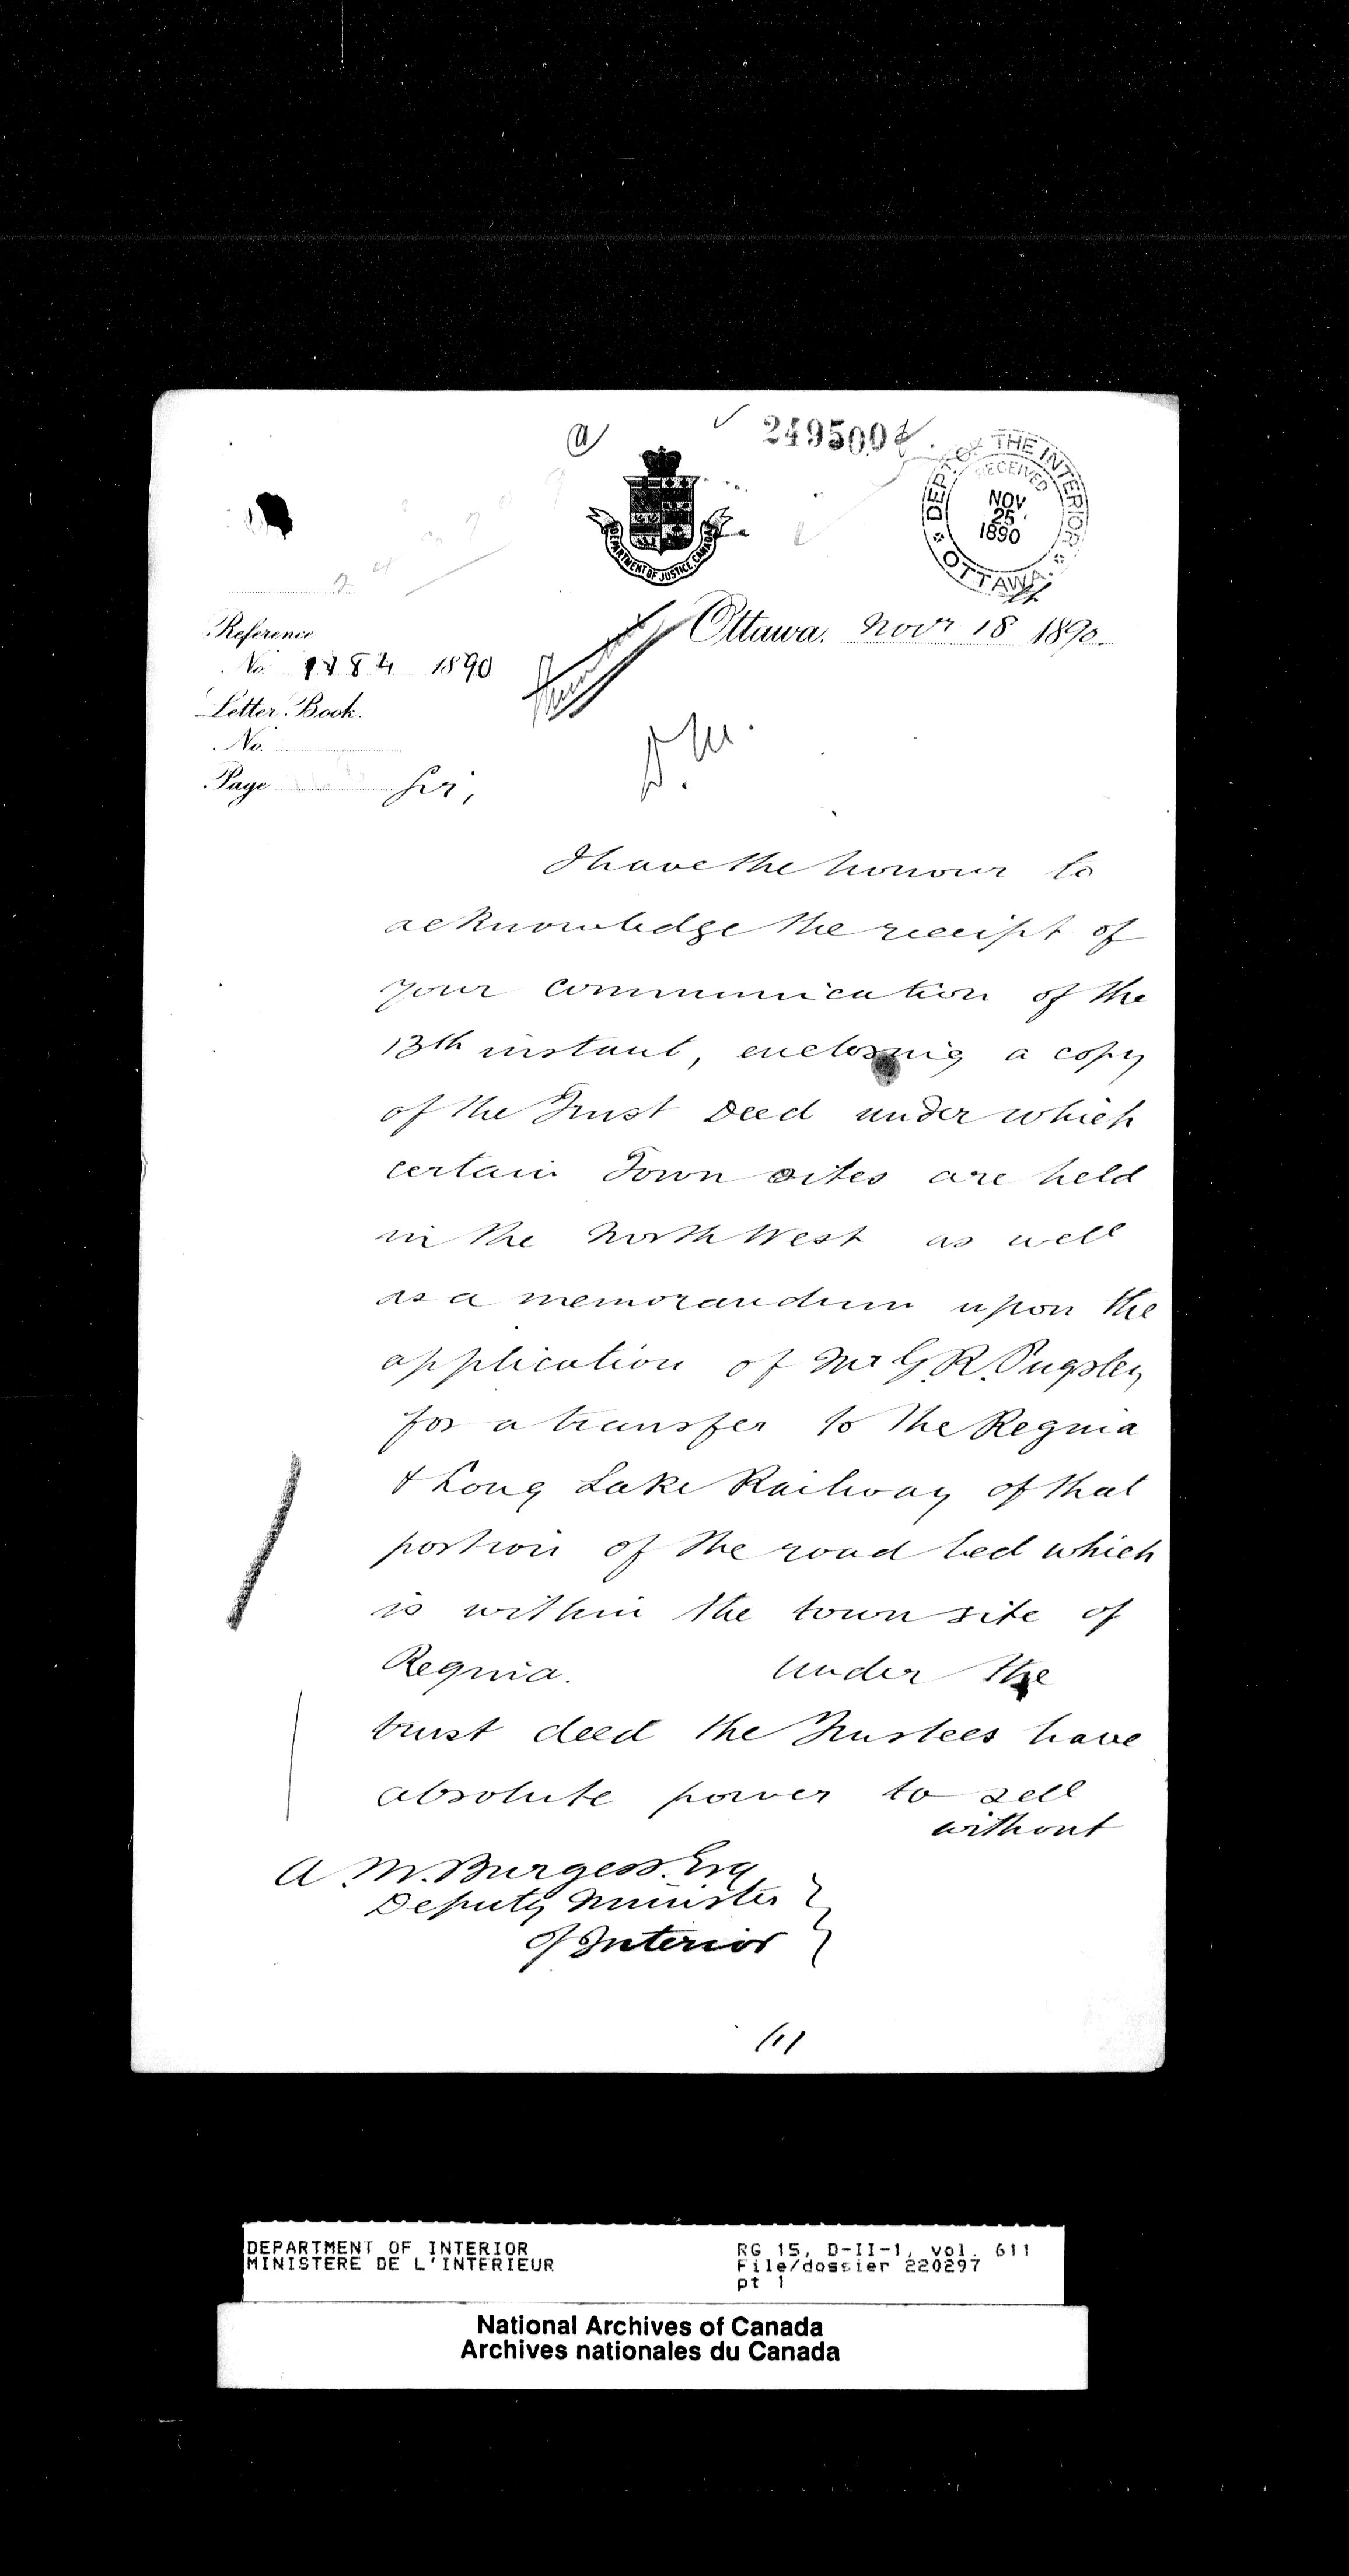 249500
DEPT OF THE INTERIOR
RECEIVED
NOV
25
1890
OTTAWA
DEPARTMENT OF JUSTICE, CANADA
Ottawa. Novr 18 1890
Reference
No. 1184 1890
Letter Book.
No.
Page
D.M.
Sir,
I have the honour to
acknowledge the receipt of
your communication of the
13th instant, enclosing a copy
of the Trust Deed under which
certain Town sites are held
in the North West as well
as a memorandum upon the
application of Mr G. R. Pugsley
for a transfer to the Regina
& Long Lake Railway of that
portion of the road bed which
is within the town site of
Regina. Under the
trust deed the Trustees have
absolute power to sell
without
A. M. Burgess. Esq
Deputy Minister
of Interior
DEPARTMENT OF INTERIOR
MINISTERE DE L'INTERIEUR
RG 15, D-II-1, vol. 611
File/dossier 220297
pt 1
National Archives of Canada
Archives nationales du Canada